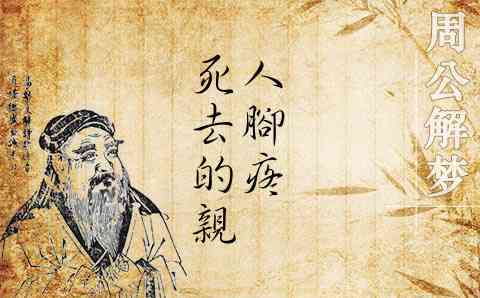 周公解梦
死去的親
人腳疼